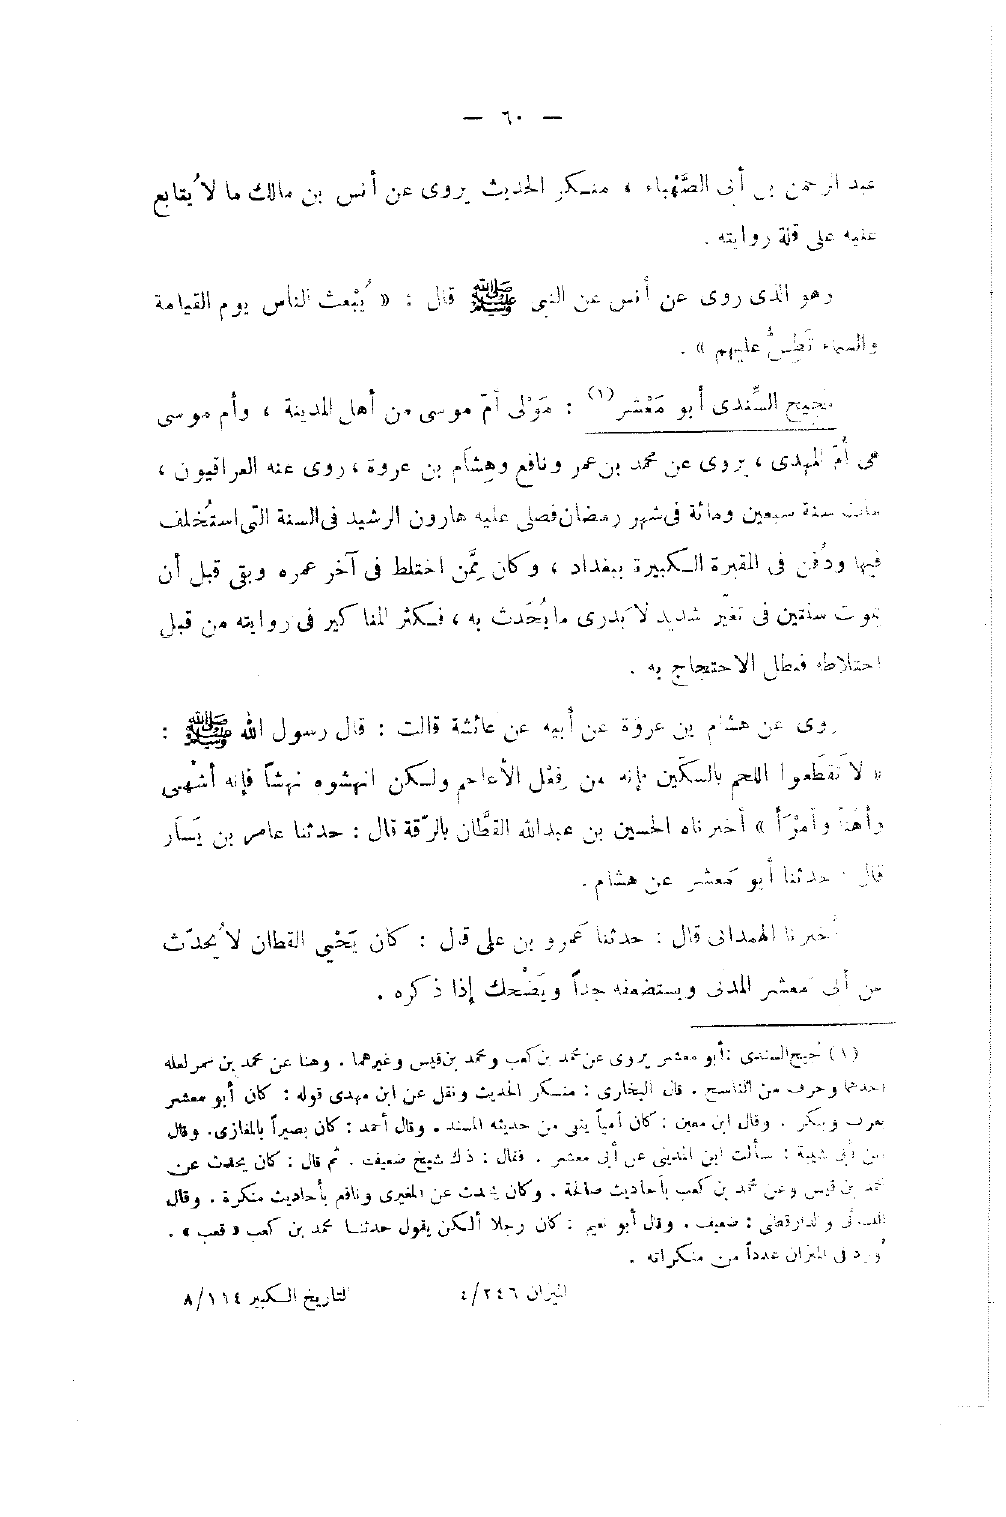 — ٦٠ —
عبد الرحمن بن أبى الصَّهْباء ، منكر الحديث يروى عن أنس بن مالك ما لا يُتابع
عليه على قلة روايته .
وهو الذى روى عن أنس عن النبى ﷺ قال : « يُبْعث الناس يوم القيامة
والسماء تَطِسُّ عليهم » .
نجيح السِّندى أبو مَعْشر (١) : مَوْلى أمّ موسى من أهل المدينة ، وأم موسى
هى أُمّ المهدى ، يروى عن محمد بن عمر ونافع وهِشَام بن عروة ، روى عنه العراقيون ،
مات سنة سبعين ومائة فى شهر رمضان فصلى عليه هارون الرشيد فى السنة التى استُخلف
فيها ودُفن فى المقبرة الكبيرة ببغداد ، وكان مِمَّن اختلط فى آخر عمره وبقى قبل أن
يموت سنتين فى تغيّر شديد لا يدرى ما يُحَدث به ، فكثر المناكير فى روايته من قبل
اختلاطه فبطل الاحتجاج به .
روى عن هشام بن عروة عن أبيه عن عائشة قالت : قال رسول الله ﷺ :
« لا تَقطَعوا اللحم بالسكّين فإنه من فِعْل الأعاجم ولكن انهشوه نهشاً فإنه أشْهى
وأهْنَأ وأمْرَأ » أخبرناه الحسين بن عبدالله القطَّان بالرّقة قال : حدثنا عامر بن يَسَار
قال : حدثنا أبو مَعشر عن هشام .
أخبرنا الهمدانى قال : حدثنا عَمرو بن على قال : كان يَحْيي القطان لا يُحدّث
عن أبى مَعشر المدنى ويستضعفه جداً ويَضْحك إذا ذكره .
(١) نجيح السندى : أبو معشر يروى عن محمد بن كعب ومحمد بن قيس وغيرهما . وهنا عن محمد بن سمر لعله
أحدهما وحرف من الناسخ . قال البخارى : منكر الحديث ونقل عن ابن مهدى قوله : كان أبو معشر
يعرف وينكر . وقال ابن معين : كان أمياً يتقى من حديثه المسند . وقال أحمد : كان بصيراً بالمغازى . وقال
ابن أبى شيبة : سألت ابن المدينى عن أبى معشر . فقال : ذلك شيخ ضعيف . ثم قال : كان يحدث عن
محمد بن قيس وعن محمد بن كعب بأحاديث صالحة . وكان يحدث عن المقبرى ونافع بأحاديث منكرة . وقال
النسائى والدارقطنى : ضعيف . وقال أبو نعيم : كان رجلا ألكن يقول حدثنا محمد بن كعب « قعب » .
أورد فى الميزان عدداً من منكراته .
الميزان ٤/٢٤٦ التاريخ الكبير ٨/١١٤